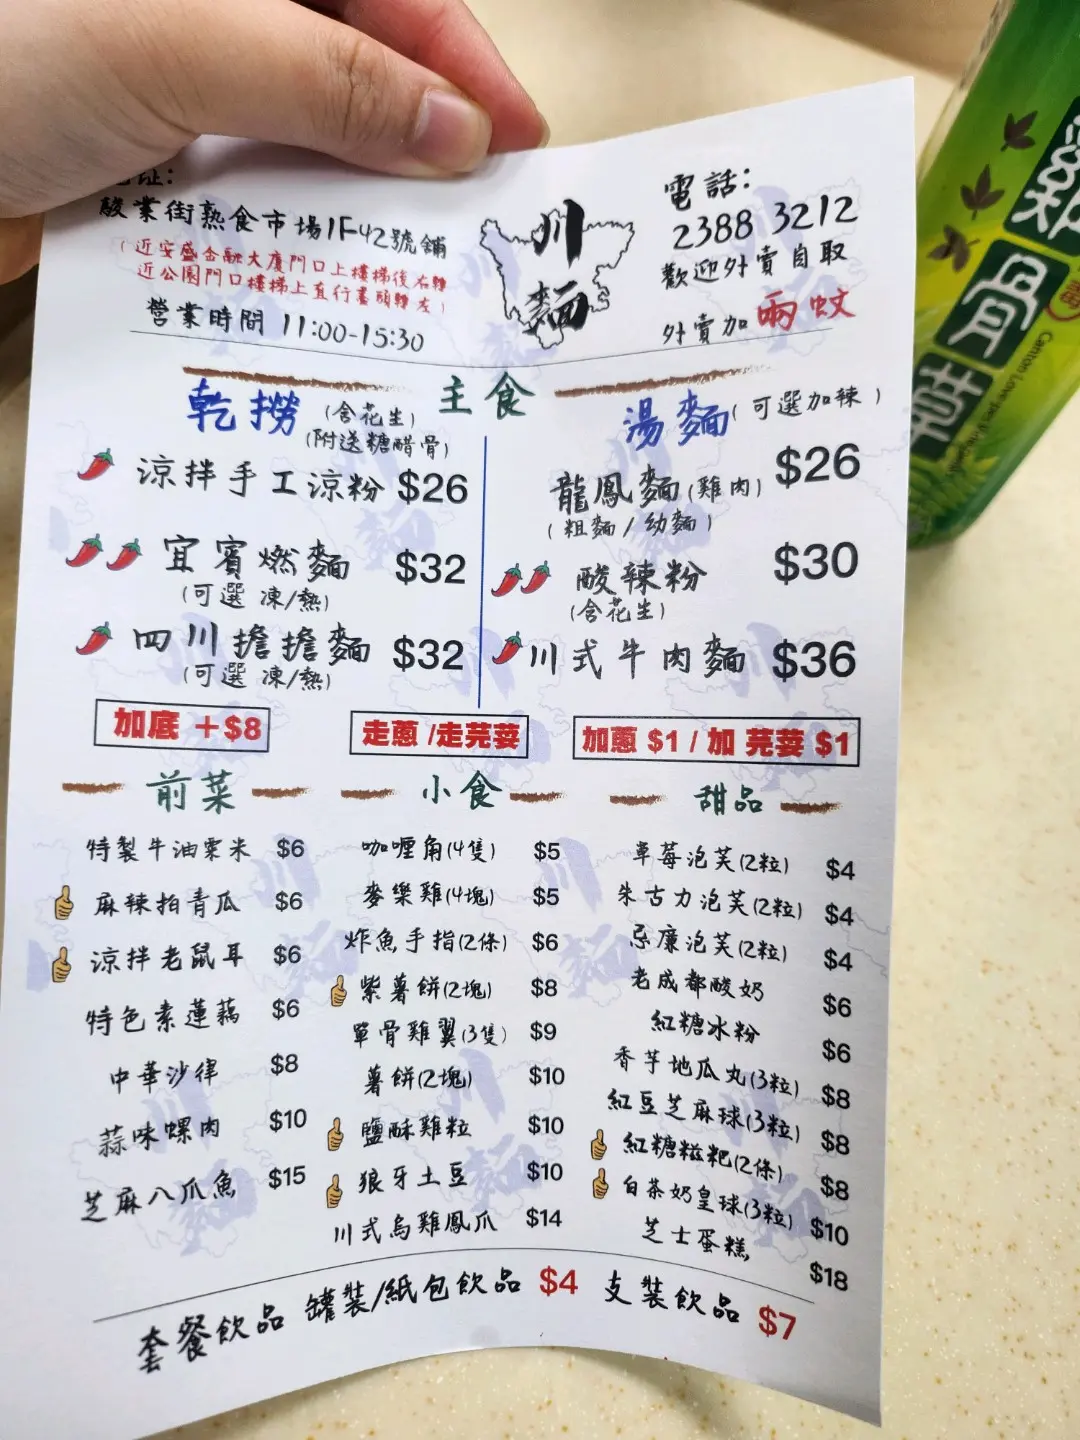 地址:
駿業街熟食市場1F42號舖
(近安盛金融大廈門口上樓梯後右轉
近公園門口樓梯上直行盡頭轉左)
營業時間 11:00-15:30
川
麵
電話:
2388 3212
歡迎外賣自取
外賣加兩蚊
主食
乾撈 (含花生)
(附送糖醋骨)
涼拌手工涼粉 $26
宜賓燃麵 $32
(可選 凍/熱)
四川擔擔麵 $32
(可選 凍/熱)
湯麵 (可選加辣)
龍鳳麵 (雞肉) $26
(粗麵/幼麵)
酸辣粉 $30
(含花生)
川式牛肉麵 $36
加底 +$8
走蔥 /走芫荽
加蔥 $1 / 加 芫荽 $1
前菜
特製牛油粟米 $6
麻辣拍青瓜 $6
涼拌老鼠耳 $6
特色素蓮藕 $6
中華沙律 $8
蒜味螺肉 $10
芝麻八爪魚 $15
小食
咖喱角(4隻) $5
麥樂雞(4塊) $5
炸魚手指(2條) $6
紫薯餅(2塊) $8
單骨雞翼(3隻) $9
薯餅(2塊) $10
鹽酥雞粒 $10
狼牙土豆 $10
川式烏雞鳳爪 $14
甜品
草莓泡芙(2粒) $4
朱古力泡芙(2粒) $4
忌廉泡芙(2粒) $4
老成都酸奶 $6
紅糖冰粉 $6
香芋地瓜丸(3粒) $8
紅豆芝麻球(3粒) $8
紅糖糍粑(2條) $8
白茶奶皇球(3粒) $10
芝士蛋糕 $18
套餐飲品 罐裝/紙包飲品 $4 支裝飲品 $7
骨
草